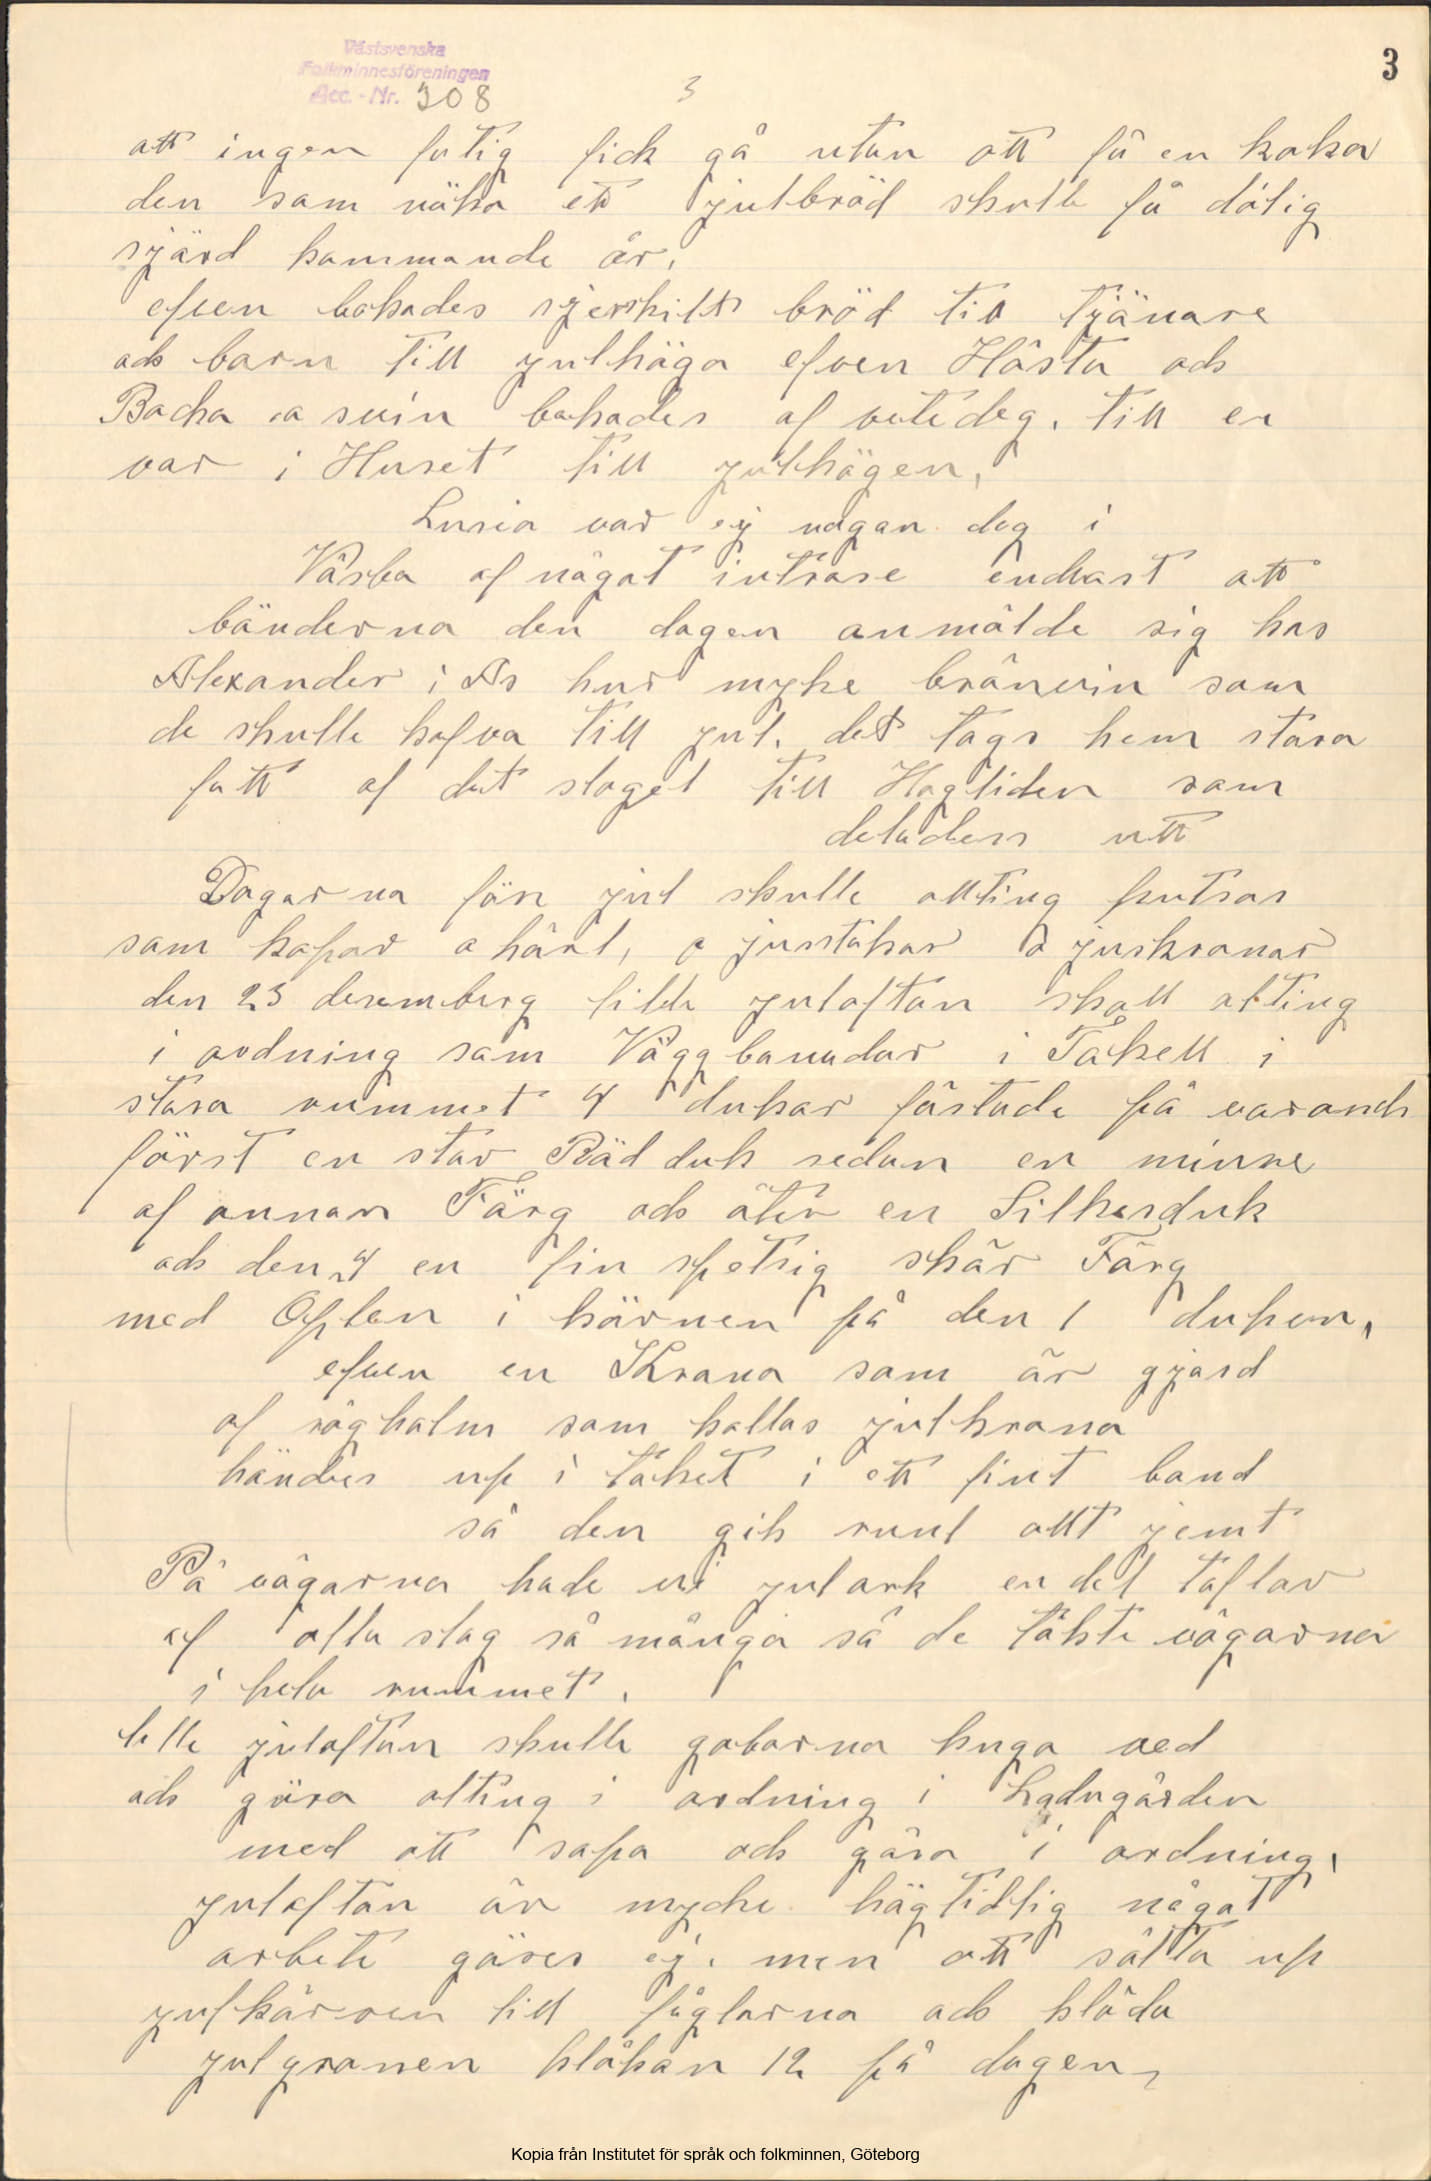 Västsvenska
Folkminnesföreningen
Acc. - Nr. 308
3
3
att ingen fatig fick gå utan att få en kaka
den som näka ett julbröd skulle få dålig
sjärd kommande år.
efven bakades sjerskilt bröd til tjänare
och barn till julhäga efven Hästa och
Backa a svin bakades af vetedeg. till en
var i Huset till julhögen,
Lusia var ej nagan dag i
Väsba af något intrase endast att
bänderna den dagen anmälde sig hos
Alexander i As hur myke bränvin som
de skulle hafva till jul. det togs hem stora
fatt af det slaget till Hagliden som
deladess utt
Dagarna förr jul skulle allting putsas
som kopar a härl, a jusstakar a juskronar
den 23 desemberg lilla julaftan skall alting
i ordning som Väggbanudar i Takell i
stora rummet 4 dukar fästade på varands
först en stor Räd duk sedan en minre
af annan Färg och åter en Silkesduk
och den 4 en fin spetsig skär Färg
med Öplen i härnen på den 1 duken,
efven en Krana som är gjord
af råghalm som kallas julkrona
händes up i taket i ett fint band
så den gik runt allt jemt
På vägarna hade vi julark en del taflar
af alla slag så många så de täkte vägarna
i hela rummet.
lille julaftan skulle gobarna huga ved
och göra alting i ordning i Ladugården
med att sapa och göra i ordning,
julaftan är mycke högtidlig något
arbete göres ej. men att sätta up
julkärven till fåglarna och kläda
julgranen klåkan 12 på dagen,
Kopia från Institutet för språk och folkminnen, Göteborg